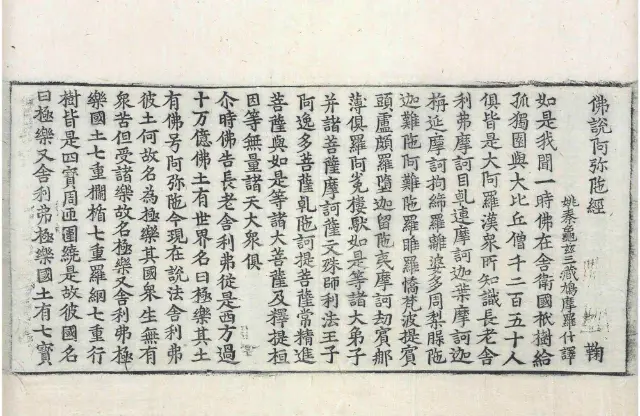 佛說阿弥陁經 鞠
姚秦龜兹三藏鳩摩羅什譯
如是我聞一時佛在舍衛國祇樹給
孤獨園與大比丘僧千二百五十人
俱皆是大阿羅漢衆所知識長老舍
利弗摩訶目乹連摩訶迦葉摩訶迦
栴延摩訶拘絺羅離婆多周梨脄陁
迦難陁阿難陁羅睺羅憍梵波提賓
頭盧頗羅墮迦留陁夷摩訶劫賓那
薄俱羅阿㝹樓馱如是等諸大弟子
并諸菩薩摩訶薩文殊師利法王子
阿逸多菩薩乹陁訶提菩薩常精進
菩薩與如是等諸大菩薩及釋提桓
因等無量諸天大衆俱
尒時佛告長老舍利弗從是西方過
十万億佛土有世界名曰極樂其土
有佛号阿弥陁今現在說法舍利弗
彼土何故名為極樂其國衆生無有
衆苦但受諸樂故名極樂又舍利弗極
樂國土七重欄楯七重羅網七重行
樹皆是四寶周迊圍繞是故彼國名
曰極樂又舍利弗極樂國土有七寶